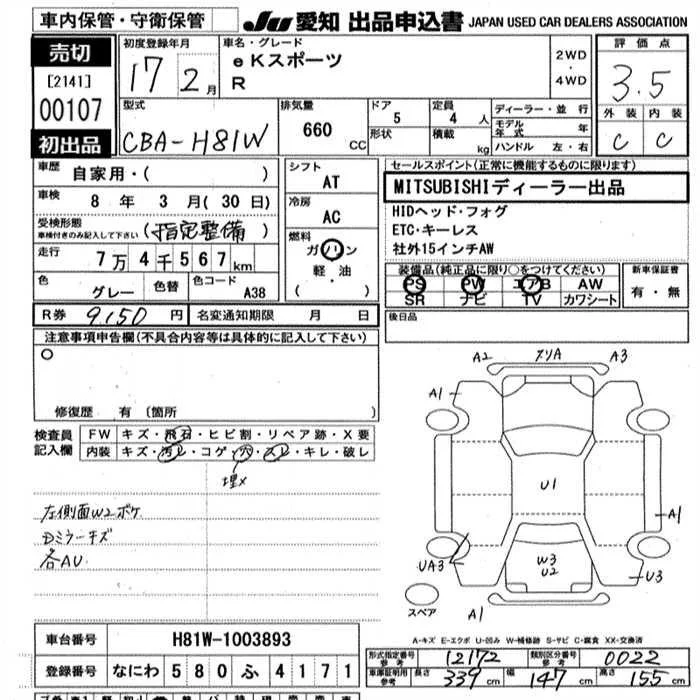 車内保管・守衛保管
JU 愛知 出品申込書 JAPAN USED CAR DEALERS ASSOCIATION
売切
[2141]
00107
初出品
初度登録年月
17 2月
車名・グレード
eKスポーツ
R
2WD
・
4WD
評価点
3.5
外装 内装
C C
型式
CBA-H81W
排気量
660 CC
ドア
5
形状
定員
4 人
積載 kg
ディーラー・並行
モデル年式 年
ハンドル 左・右
車歴
自家用・( )
車検
8年 3月(30日)
受検形態
車検付きのみ記入して下さい
(指定整備)
走行
7万4千567km
色
グレー
色替
色コード
A38
シフト
AT
冷房
AC
燃料
ガソリン
軽・油
( )
セールスポイント(正常に機能するものに限ります)
MITSUBISHIディーラー出品
HIDヘッド・フォグ
ETC・キーレス
社外15インチAW
装備品(純正品に限り○をつけてください)
PS PW エアB AW
SR ナビ TV カワシート
新車保証書
有・無
後日品
R券 9,150円
名変通知期限 月 日
注意事項申告欄(不具合内容等は具体的に記入して下さい)
○
修復歴 有(箇所 )
検査員
記入欄
FW キズ・飛石・ヒビ割・リペア跡・X要
内装 キズ・汚レ・コゲ・穴・スレ・キレ・破レ
埋X
左側面W2ボケ
Dミラーキズ
各AU
A2 スリA A3
A1
U1
A1
UA3
W3
U2
U3
スペア
A1
A-キズ E-エクボ U-凹み W-補修跡 S-サビ C-腐食 XX-交換済
車台番号 H81W-1003893
登録番号 なにわ 580 ふ 4171
形式指定番号
参考
12172
類別区分番号
参考
0022
車庫証明用
参考
長さ 339cm 幅 147cm 高さ 155cm